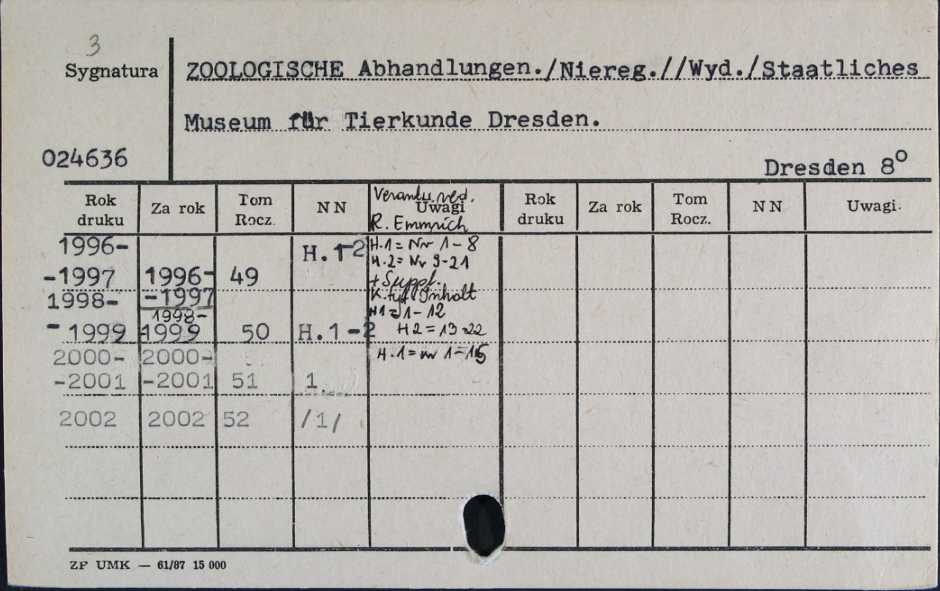 3
Sygnatura
ZOOLOGISCHE Abhandlungen./Niereg.//Wyd./Staatliches
Museum für Tierkunde Dresden.
024636
Dresden 8⁰
Rok druku Za rok Tom Rocz. N N Uwagi Rok druku Za rok Tom Rocz. N N Uwagi
R. Emmrich
1996-
-1997 1996-
-1997 49 H. 1-2 H.1 = Nr 1-8
H.2 = Nr 9-21
+ Suppl.
1998-
-1999 1998-
1999 50 H.1-2 H1 = 1-12
H2 = 13-22
2000-
-2001 2000-
-2001 51 1. H.1 = nr 1-15
2002 2002 52 /1/
ZP UMK — 61/87 15 000